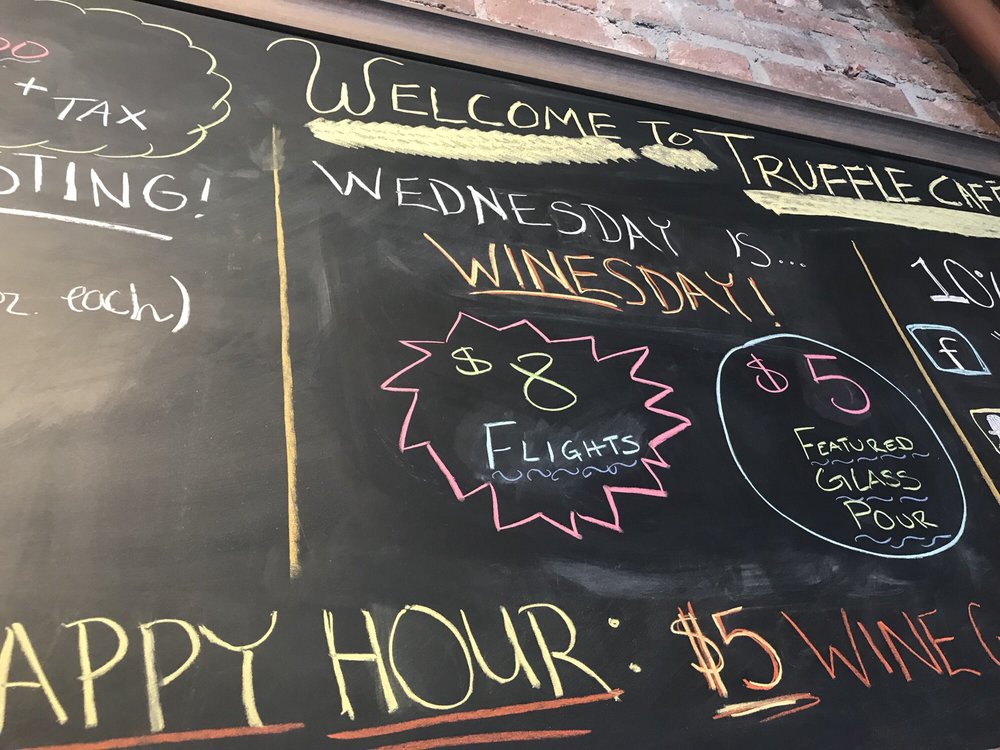 + TAX
WELCOME TO TRUFFLE CAFE
WEDNESDAY IS...
WINESDAY!
$8
FLIGHTS
$5
FEATURED
GLASS
POUR
each)
10%
f
APPY HOUR: $5 WINE